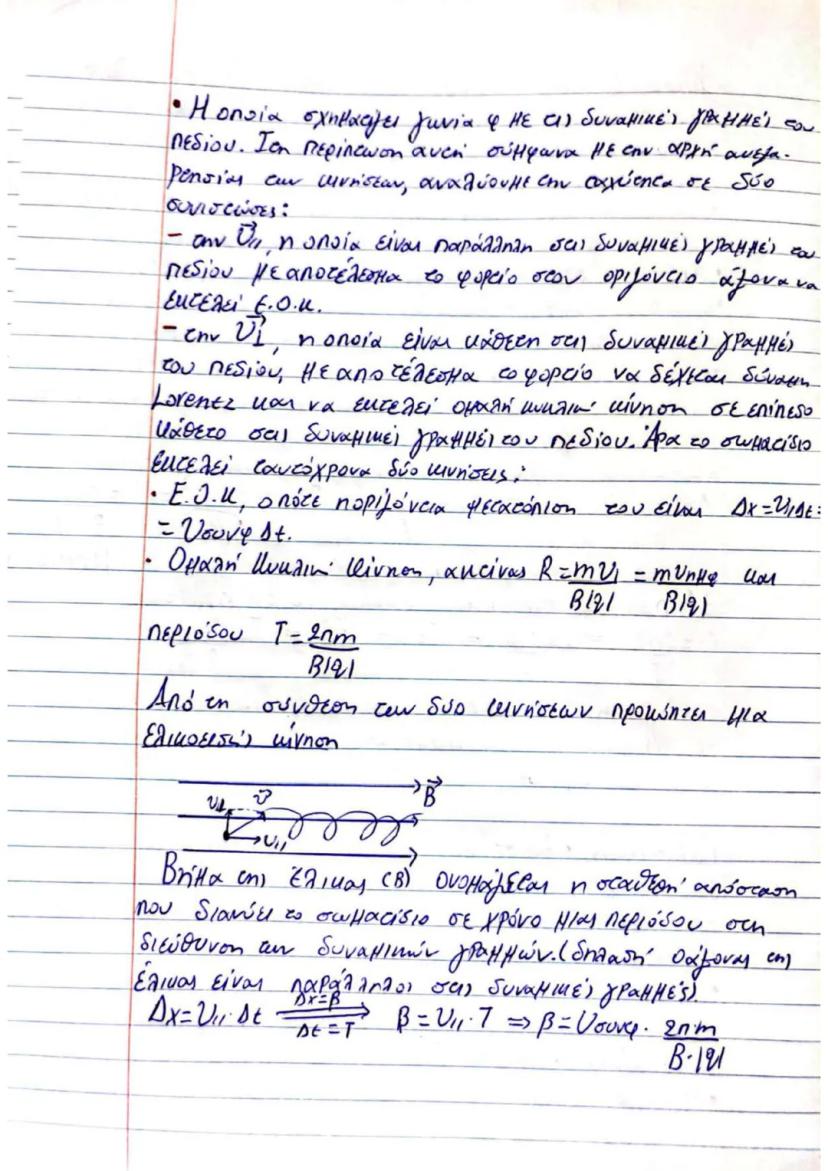 • Η οποία σχηματίζει γωνία φ με τις δυναμικές γραμμές του
πεδίου. Στη περίπτωση αυτή σύμφωνα με την αρχή ανεξα-
ρτησίας των κινήσεων, αναλύουμε την ταχύτητα σε δύο
συνιστώσες:
– την υ⃗||, η οποία είναι παράλληλη στις δυναμικές γραμμές του
πεδίου με αποτέλεσμα το φορείο στον οριζόντιο άξονα να
εκτελεί Ε.Ο.Κ.
– την υ⃗⊥, η οποία είναι κάθετη στις δυναμικές γραμμές
του πεδίου, με αποτέλεσμα το φορείο να δέχεται δύναμη
Lorentz και να εκτελεί ομαλή κυκλική κίνηση σε επίπεδο
κάθετο στις δυναμικές γραμμές του πεδίου. Άρα το σωματίδιο
εκτελεί ταυτόχρονα δύο κινήσεις:
• Ε.Ο.Κ, οπότε ηοριζόντια μετατόπιση του είναι Δx=υ||Δt=
= υσυνφ Δt.
• Ομαλή κυκλική κίνηση, ακτίνας R = mυ⊥/B|q| = mυημφ/B|q| και
περιόδου T = 2πm/B|q|
Από τη σύνθεση των δύο κινήσεων προκύπτει μια
ελικοειδής κίνηση
B⃗
υ⊥ υ⃗
υ||
Βήμα της έλικας (β) ονομάζεται η σταθερή απόσταση
που διανύει το σωματίδιο σε χρόνο μιας περιόδου στη
διεύθυνση των δυναμικών γραμμών. (δηλαδή ο άξονας της
έλικας είναι παράλληλος στις δυναμικές γραμμές)
Δx = υ||·Δt ⟹ (Δx=β, Δt=T) β = υ||·T ⇒ β = υσυνφ · 2πm/B·|q|